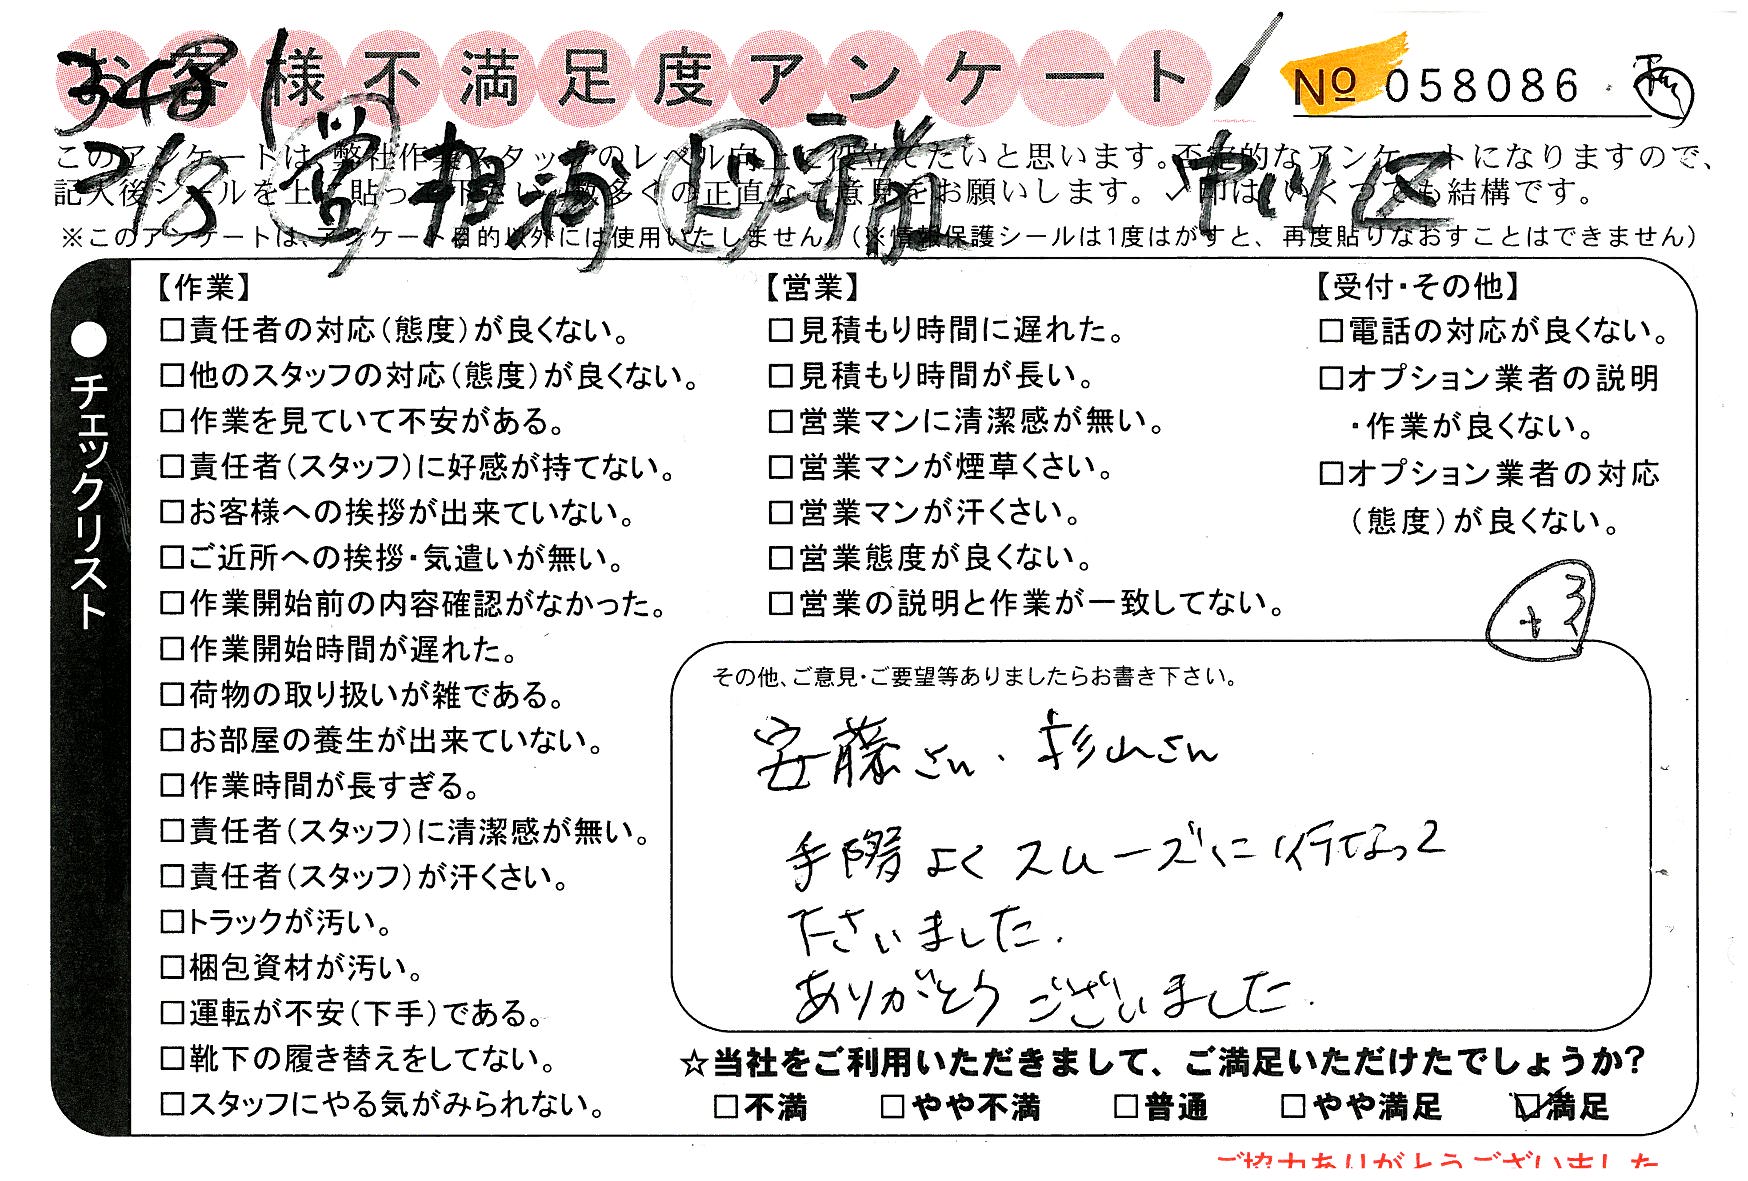 お客様不満足度アンケート
No 058086
2/8 営 相浦 中川区
このアンケートは、弊社作業スタッフのレベル向上に役立てたいと思います。否定的なアンケートになりますので、
記入後シールを上に貼って下さい。数多くの正直なご意見をお願いします。✓印は、いくつでも結構です。
※このアンケートは、アンケート目的以外には使用いたしません。（※情報保護シールは1度はがすと、再度貼りなおすことはできません）
●チェックリスト
【作業】
□責任者の対応（態度）が良くない。
□他のスタッフの対応（態度）が良くない。
□作業を見ていて不安がある。
□責任者（スタッフ）に好感が持てない。
□お客様への挨拶が出来ていない。
□ご近所への挨拶・気遣いが無い。
□作業開始前の内容確認がなかった。
□作業開始時間が遅れた。
□荷物の取り扱いが雑である。
□お部屋の養生が出来ていない。
□作業時間が長すぎる。
□責任者（スタッフ）に清潔感が無い。
□責任者（スタッフ）が汗くさい。
□トラックが汚い。
□梱包資材が汚い。
□運転が不安（下手）である。
□靴下の履き替えをしてない。
□スタッフにやる気がみられない。
【営業】
□見積もり時間に遅れた。
□見積もり時間が長い。
□営業マンに清潔感が無い。
□営業マンが煙草くさい。
□営業マンが汗くさい。
□営業態度が良くない。
□営業の説明と作業が一致してない。
【受付・その他】
□電話の対応が良くない。
□オプション業者の説明
・作業が良くない。
□オプション業者の対応
（態度）が良くない。
+3
その他、ご意見・ご要望等ありましたらお書き下さい。
安藤さん、杉山さん
手際よくスムーズに行なって
下さいました。
ありがとうございました。
☆当社をご利用いただきまして、ご満足いただけたでしょうか?
□不満 □やや不満 □普通 □やや満足 ☑満足
ご協力ありがとうございました